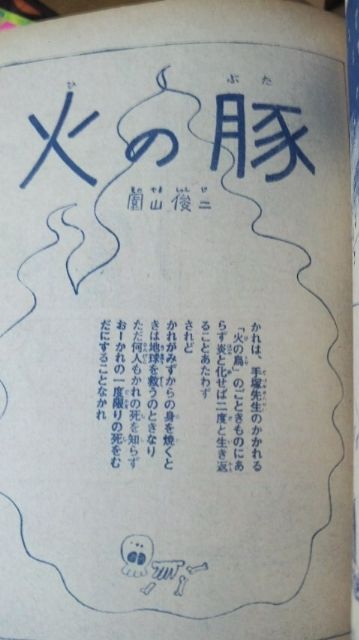 火の豚
園山俊二
かれは、手塚先生のかかれる
「火の鳥」のごときものにあ
らず炎と化せば二度と生き返
ることあたわず
されど
かれがみずからの身を焼くと
きは地球を救うのときなり
ただ何人もかれの死を知らず
おーかれの一度限りの死をむ
だにすることなかれ